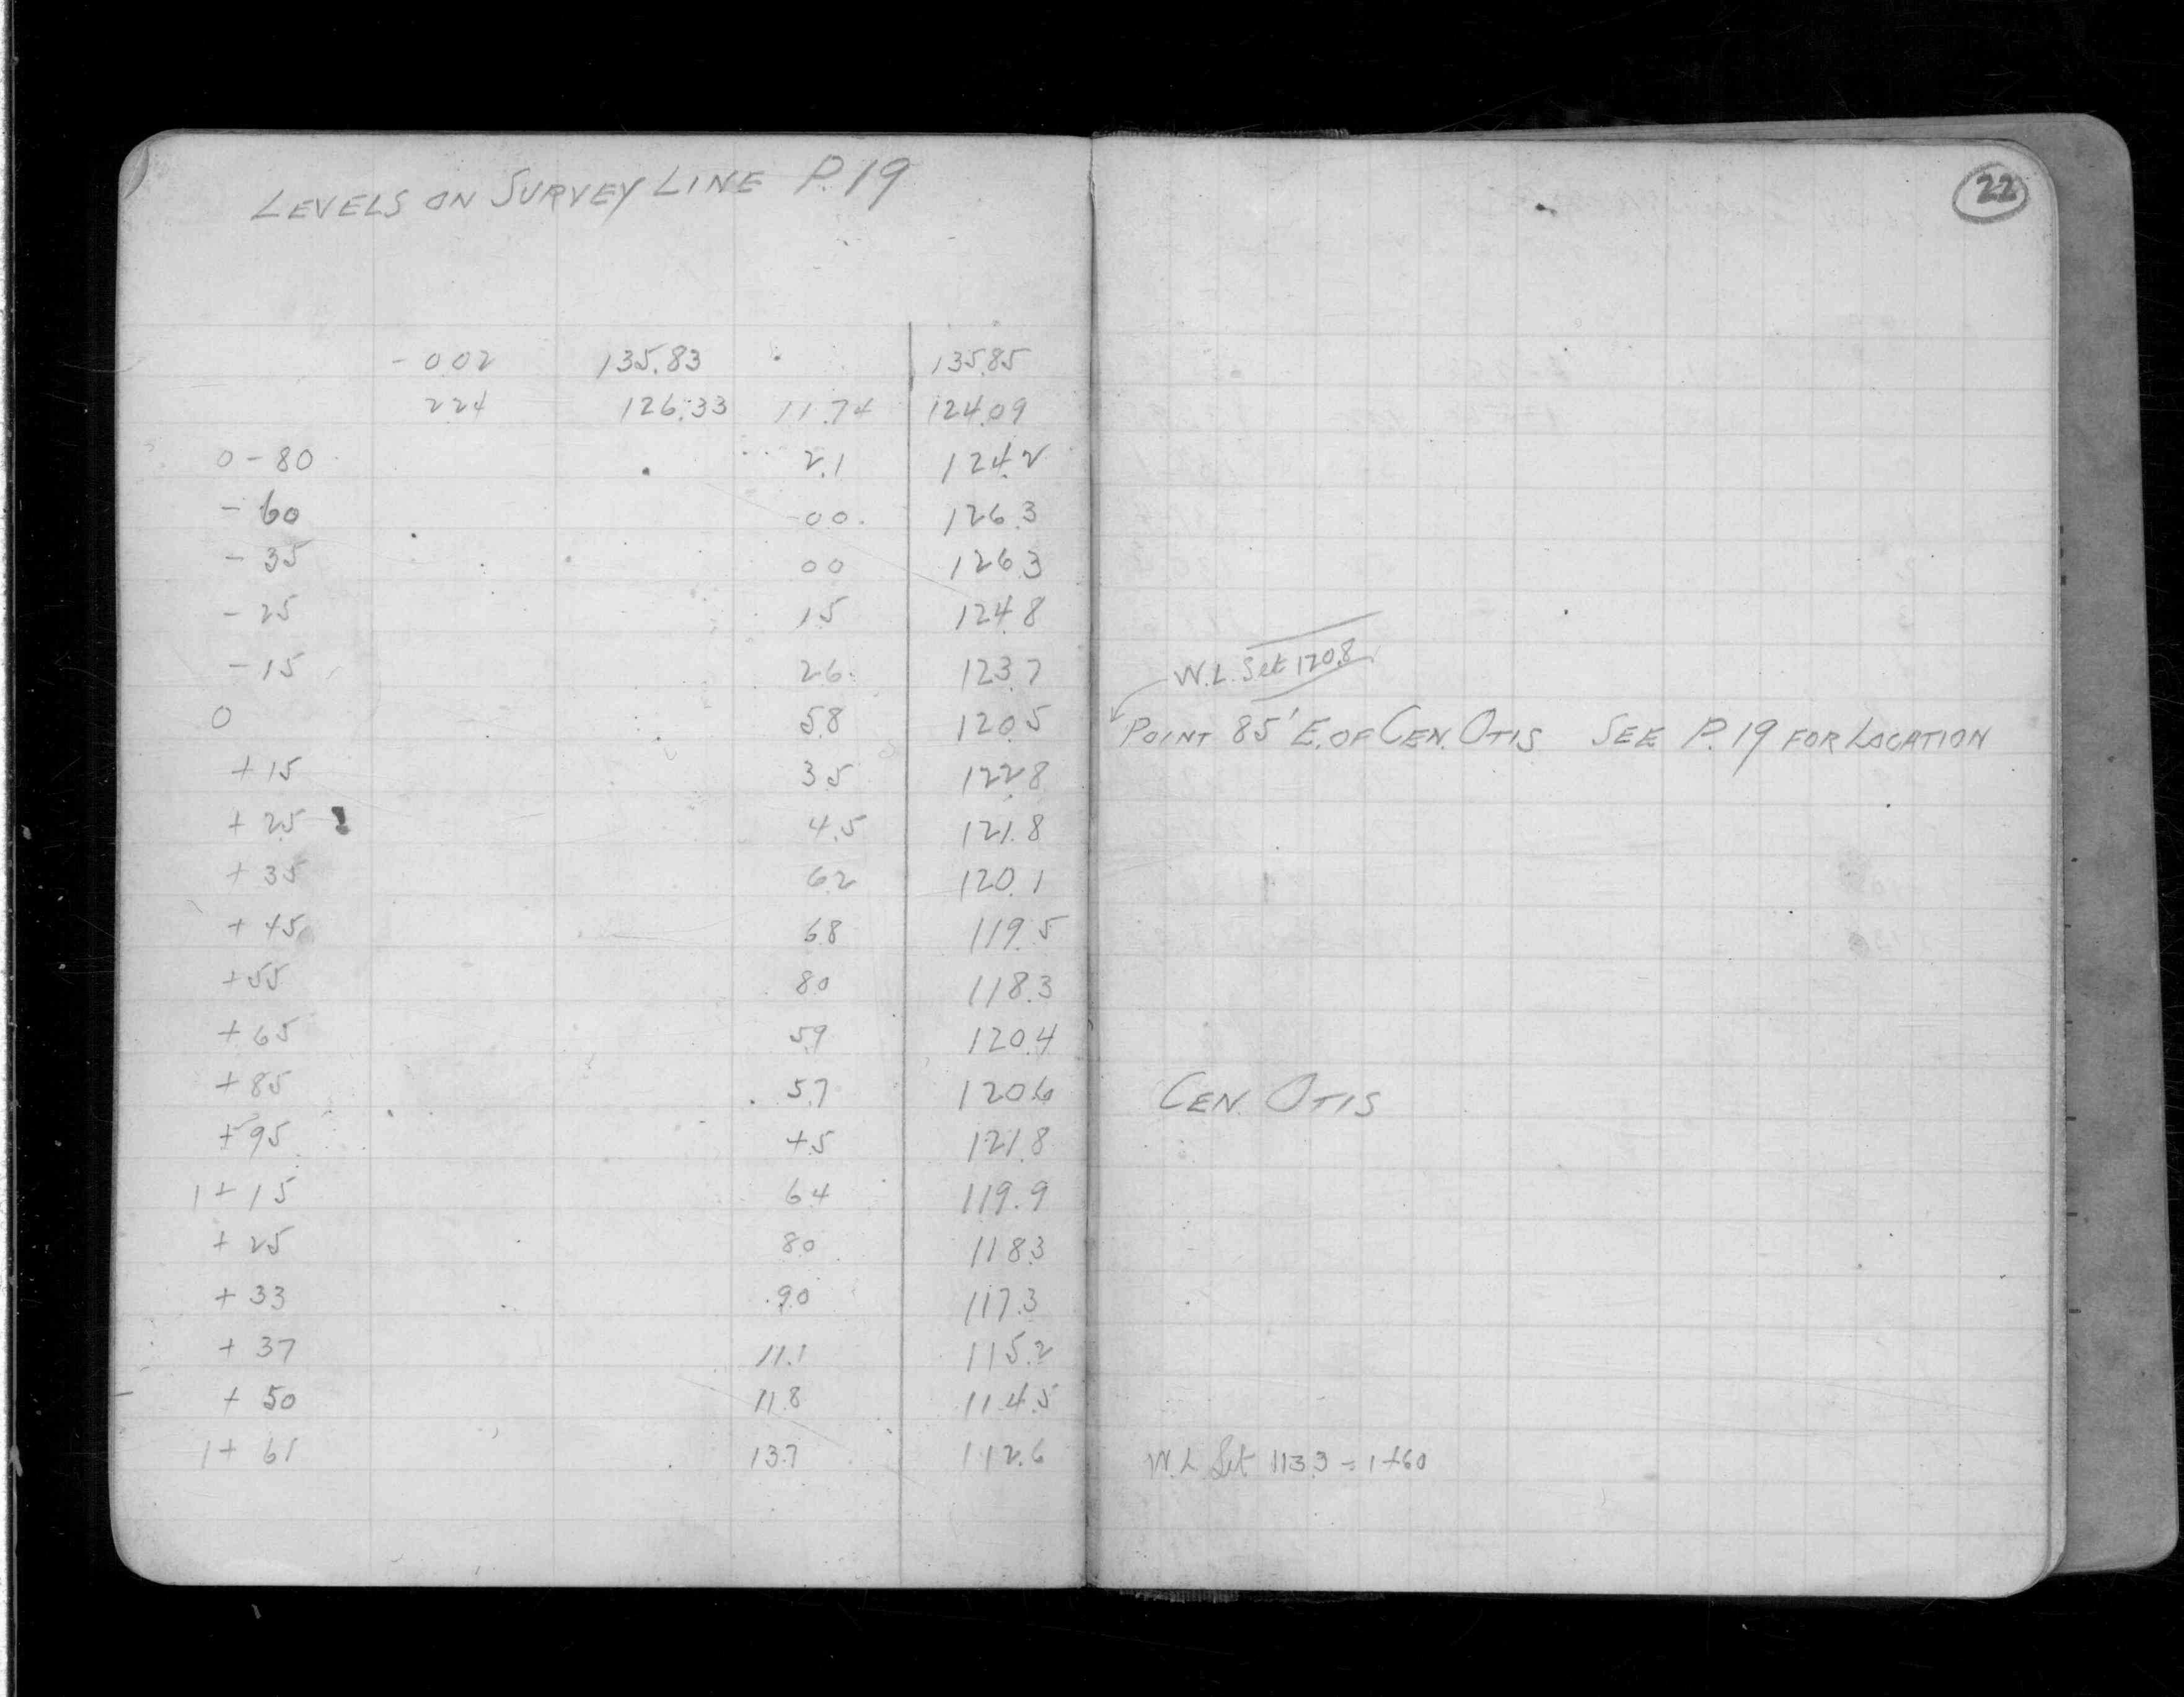 LEVELS ON SURVEY LINE P. 19
22
- 0.02 135.83 135.85
2.24 126.33 11.74 124.09
0 - 80 2.1 124.2
- 60 0.0 126.3
- 35 0.0 126.3
- 25 1.5 124.8
- 15 2.6 123.7
W.L. Set 120.8
0 5.8 120.5 POINT 85' E. OF CEN. OTIS SEE P. 19 FOR LOCATION
+ 15 3.5 122.8
+ 25 4.5 121.8
+ 35 6.2 120.1
+ 45 6.8 119.5
+ 55 8.0 118.3
+ 65 5.9 120.4
+ 85 5.7 120.6 CEN. OTIS
+ 95 4.5 121.8
1 + 15 6.4 119.9
+ 25 8.0 118.3
+ 33 9.0 117.3
+ 37 11.1 115.2
+ 50 11.8 114.5
1 + 61 13.7 112.6 W.L. Set 113.3 = 1+60